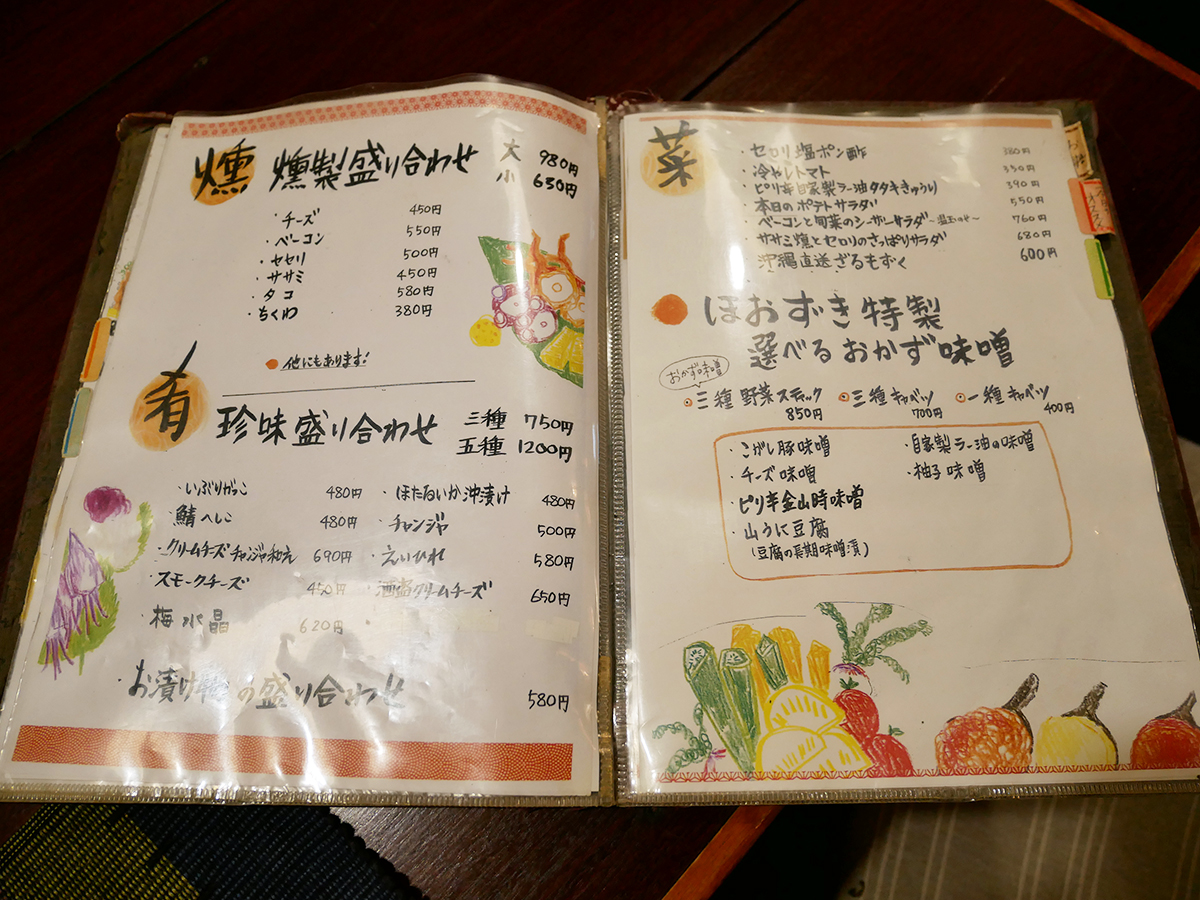 燻 燻製盛り合わせ 大 980円
小 630円
・チーズ 450円
・ベーコン 550円
・セセリ 500円
・ササミ 450円
・タコ 580円
・ちくわ 380円
他にもあります!
肴 珍味盛り合わせ 三種 750円
五種 1200円
・いぶりがっこ 480円
・鯖へしこ 480円
・クリームチーズチャンジャ和え 690円
・スモークチーズ 450円
・梅水晶 620円
・ほたるいか沖漬け 480円
・チャンジャ 500円
・えいひれ 580円
・酒盗クリームチーズ 650円
・お漬け物の盛り合わせ 580円
菜
・セロリ塩ポン酢 380円
・冷やしトマト 350円
・ピリ辛自家製ラー油タタキきゅうり 390円
・本日のポテトサラダ 550円
・ベーコンと旬菜のシーザーサラダ~温玉のせ~ 760円
・ササミ燻とセロリのさっぱりサラダ 680円
・沖縄直送ざるもずく 600円
ほおずき特製
選べるおかず味噌
おかず味噌
三種 野菜スティック 850円
三種 キャベツ 700円
一種 キャベツ 400円
・こがし豚味噌
・チーズ味噌
・ピリ辛金山時味噌
・山うに豆腐
(豆腐の長期味噌漬)
・自家製ラー油の味噌
・柚子味噌